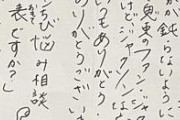 が鈍らないように
東のファンジャ
けどジャクソンは
いもありがとう
りがとうござい
悩み相談
表ですか?